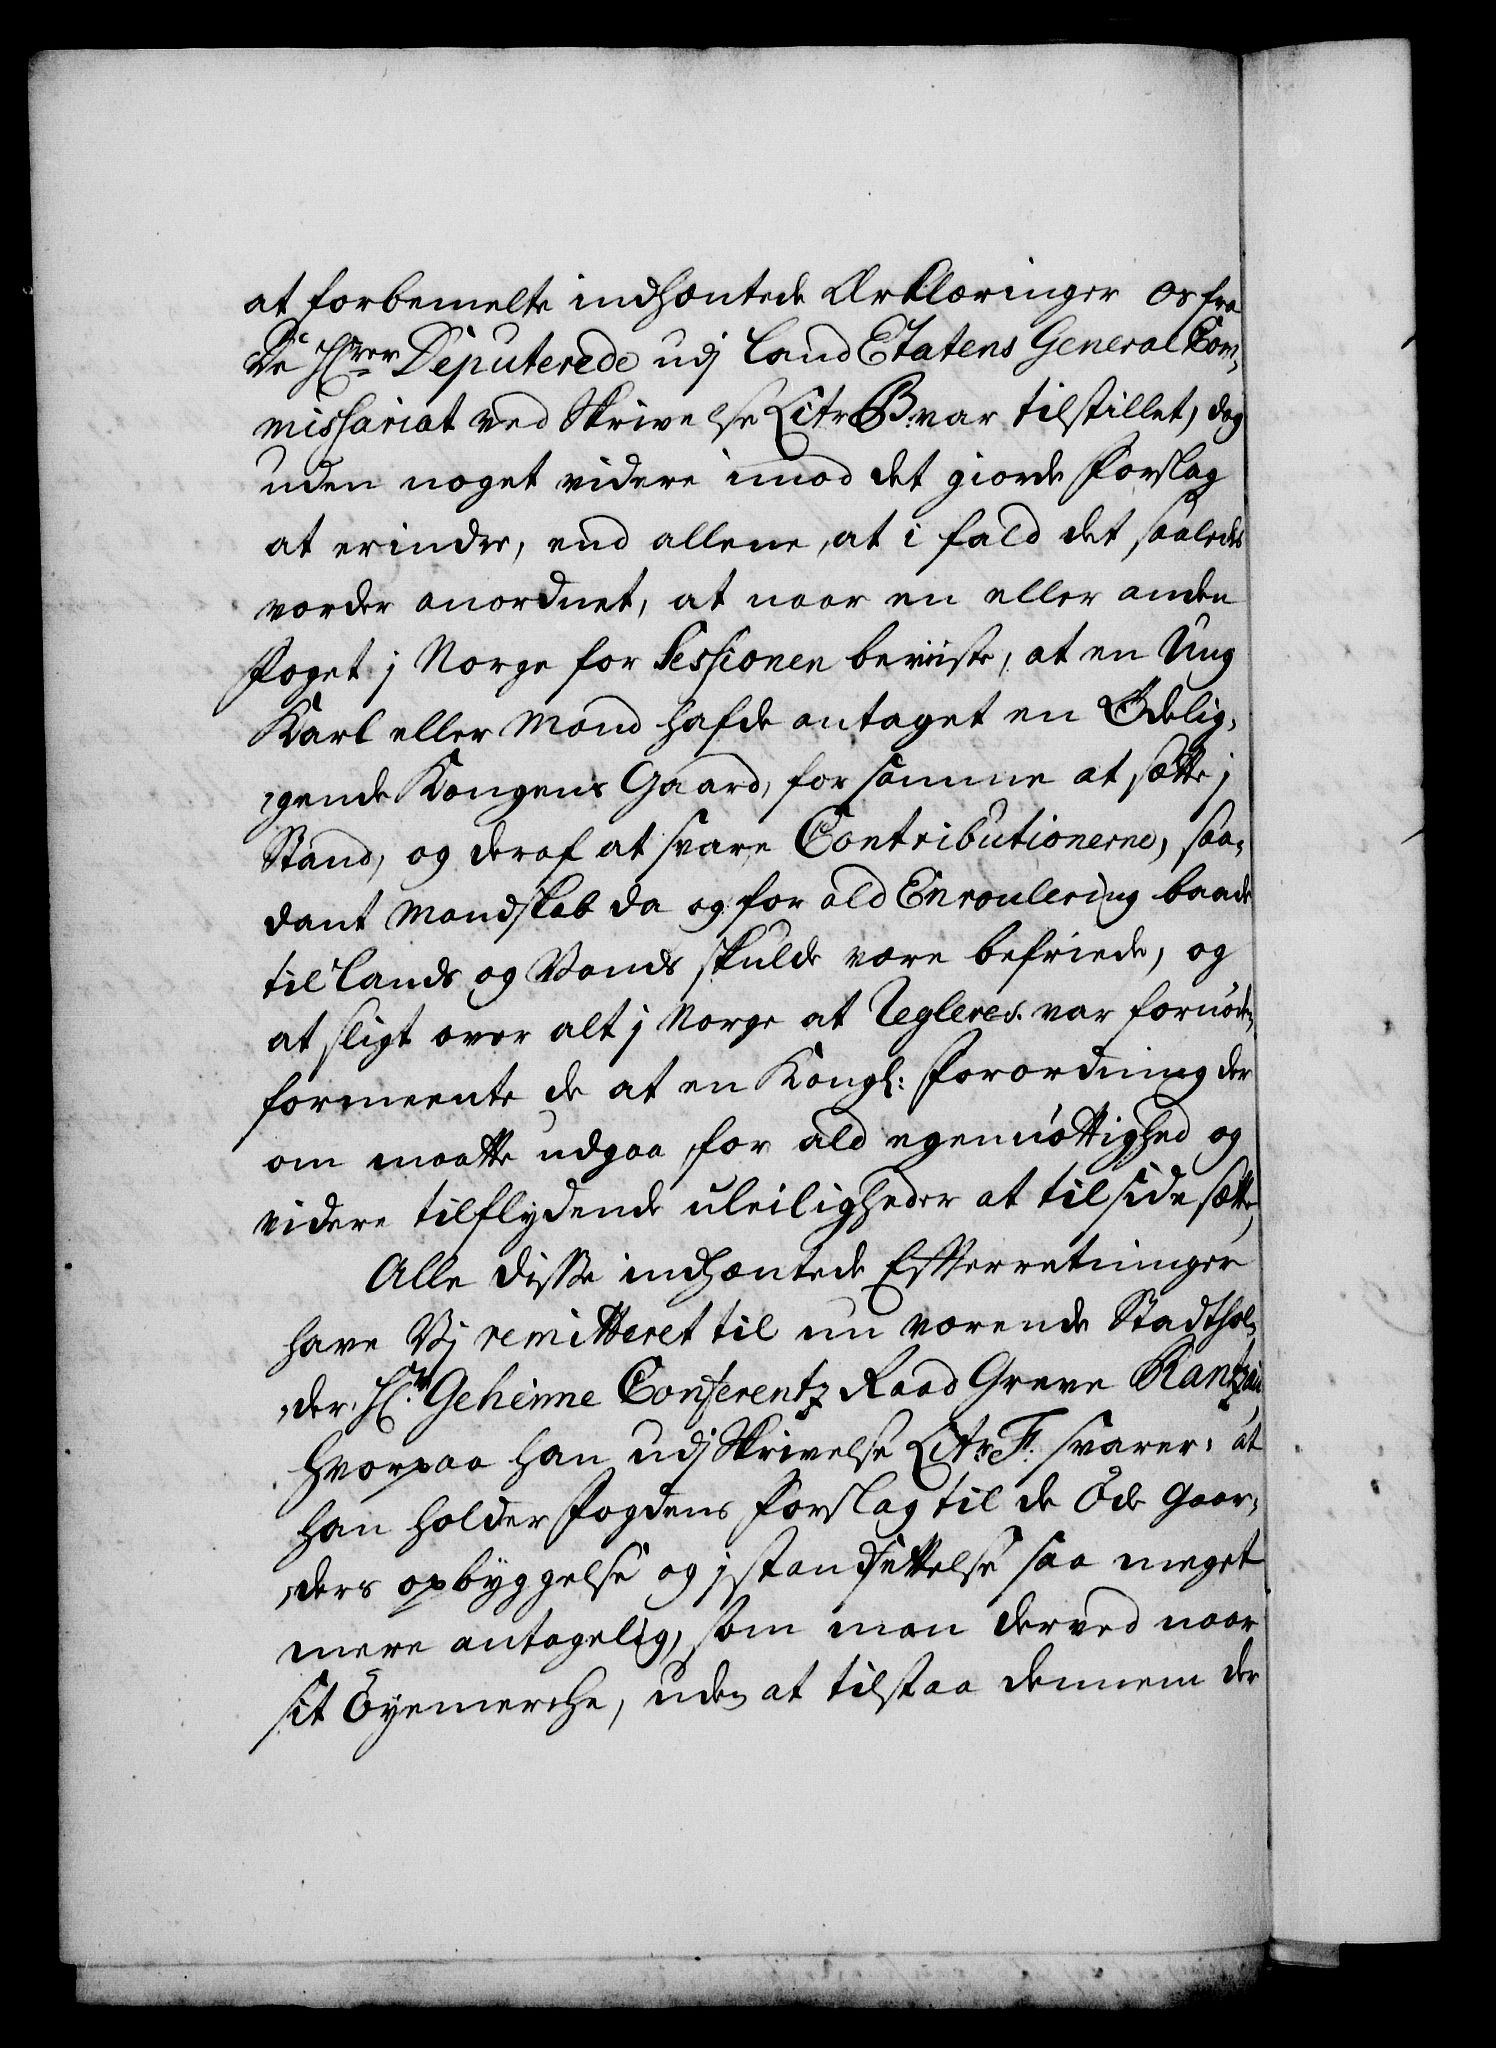 at forbemelte indhæntede Erklæringer os fra
De Hrer Deputerede udj Land Etatens General Com,
missariat ved Skrivelse Litr B. var tilstillet, dog
uden noget videre imod det giorde Forslag
at erindre, end allene, at i fald det saaledes
vorder anordnet, at naar en eller anden
Foget j Norge for Sessionen beviiste, at en Ung
Karl eller Mand hafde antaget en Ödelig,
,gende Kongens Gaard, for samme at sætte j
Stand, og deraf at svare Contributionerne, saa,
dant Mandskab da og for ald Enroulering baade
til Lands og Vands skulde være befriede, og
at sligt over alt j Norge at Regleres var fornöden,
formeente de at en Kongl: Forordning der
om maatte udgaa, for ald egennöttighed og
videre tilflydende uleiligheder at tilside sætte,
Alle disse indhæntede Efterretninger
have Vj remitteret til nu værende Stadthol,
,der, Hr. Geheime Conferentz Raad Greve Rantzau
hvorpaa han udj Skrivelse Litr F. svarer: at
han holder Fogdens Forslag til de Öde Gaar,
,ders opbyggelse og jstandsættelse saa meget
mere antagelig, som man derved naar
sit Öyemerche, uden at tilstaa dennem der